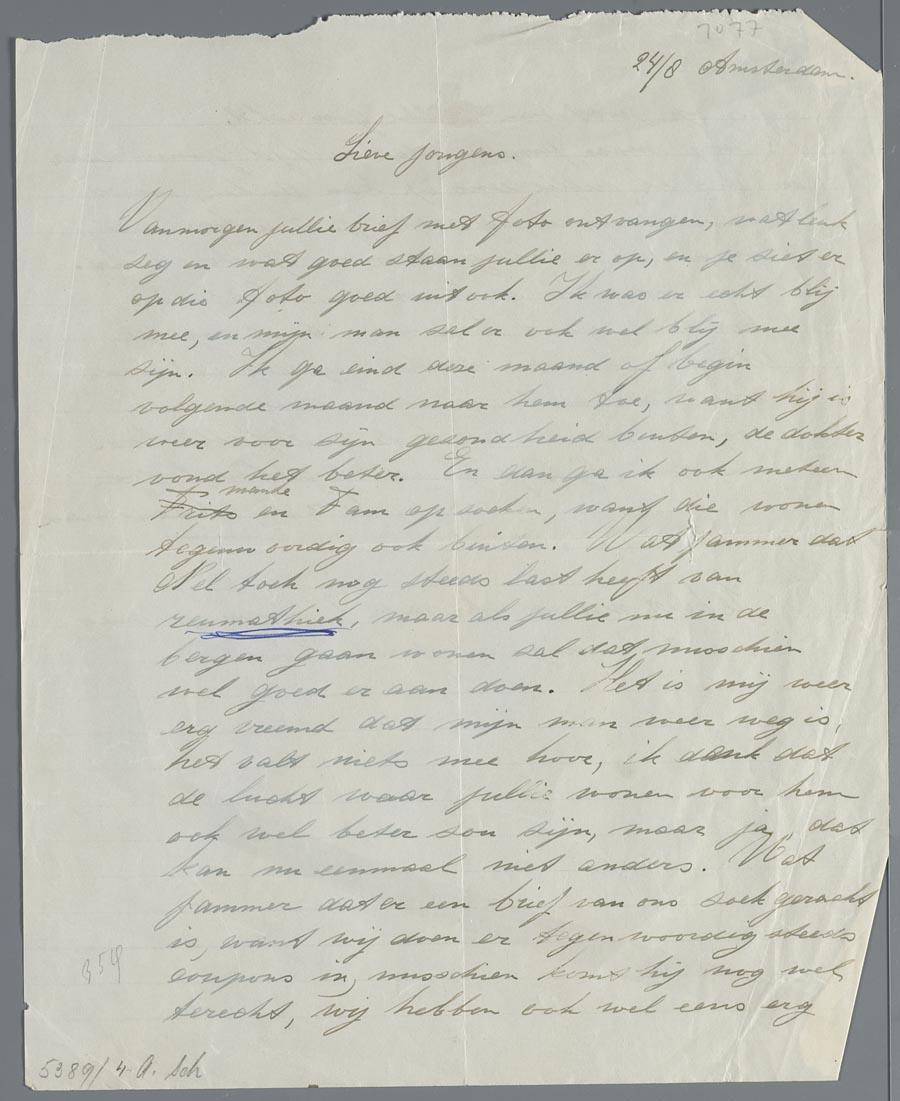 7077
24/8 Amsterdam.
Lieve jongens.
Vanmorgen jullie brief met foto ontvangen, wat leuk
seg en wat goed staan jullie er op, en je siet er
op die foto goed uit ook. Ik was er echt blij
mee, en mijn man sal er ook wel blij mee
sijn. Ik ga eind deze maand of begin
volgende maand naar hem toe, want hij is
weer voor sijn gezondheid buiten, de dokter
vond het beter. En dan ga ik ook meteen
Frits manke en Fam op soeken, want die wonen
tegenwoordig ook buiten. Wat jammer dat
Nel toch nog steeds last heeft van
reumathiek, maar als jullie nu in de
bergen gaan wonen sal dat misschien
wel goed er aan doen. Het is mij weer
erg vreemd dat mijn man weer weg is,
het valt niets mee hoor, ik denk dat
de lucht waar jullie wonen voor hem
ook wel beter sou sijn, maar ja dat
kan nu eenmaal niet anders. Wat
jammer dat er een brief van ons soek geraakt
is, want wij doen er tegenwoordig steeds
coupons in, misschien komt hij nog wel
terecht, wij hebben ook wel eens erg
354
5389/4 a. Sch